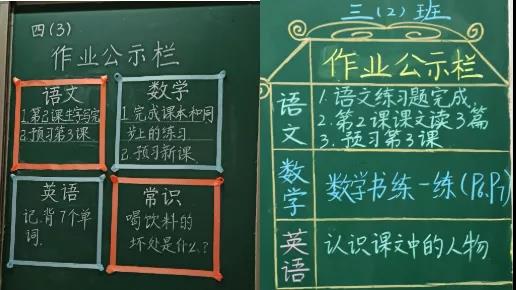 四(3)
作业公示栏
语文
1.第2课生字写完
2.预习第3课
数学
1.完成课本和同
步上的练习
2.预习新课.
英语
记.背7个单
词.
常识
喝饮料的
坏处是什么?
三(2)班
作业公示栏
语文
1.语文练习题完成.
2.第2课课文读3篇
3.预习第3课
数学
数学书练一练(P6.P7)
英语
认识课文中的人物